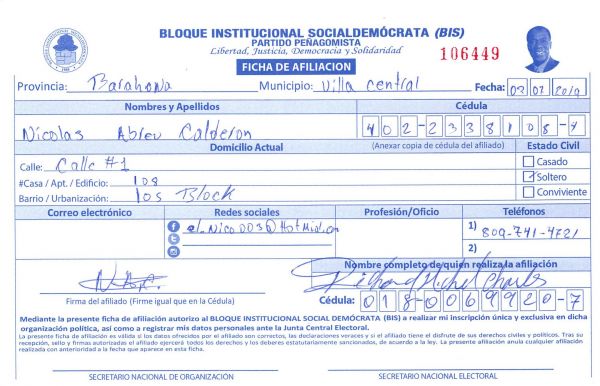 BLOQUE INSTITUCIONAL SOCIALDEMÓCRATA (BIS)
PARTIDO PEÑAGOMISTA
Libertad, Justicia, Democracia y Solidaridad
106449
FICHA DE AFILIACION
Provincia: Barahona Municipio: Villa central Fecha: 02 02 2019
Nombres y Apellidos Cédula
Nicolas Abreu Calderon 402-2338108-7
Domicilio Actual (Anexar copia de cédula del afiliado) Estado Civil
Calle: Calle #1 Casado
#Casa / Apt. / Edificio: 108 Soltero
Barrio / Urbanización: los Block Conviviente
Correo electrónico Redes sociales Profesión/Oficio Teléfonos
el_Nico DOS@Hotmial.con 1) 809-741-4721
2)
Nombre completo de quien realiza la afiliación
N.A.C. Richard Michel Charles
Firma del afiliado (Firme igual que en la Cédula) Cédula: 018-0069920-7
Mediante la presente ficha de afiliación autorizo al BLOQUE INSTITUCIONAL SOCIAL DEMÓCRATA (BIS) a realizar mi inscripción única y exclusiva en dicha
organización política, así como a registrar mis datos personales ante la Junta Central Electoral.
La presente ficha de afiliación es válida y si los datos ofrecidos por el afiliado son correctos, las declaraciones veraces y si el afiliado tiene el disfrute de sus derechos civiles y políticos. Tras su
recepción, sello y firmas autorizadas el afiliado ejercerá todos los derechos y los deberes estatutariamente sancionados, de acuerdo a la ley. La presente afiliación anula cualquier afiliación
realizada con anterioridad a la fecha que aparece en esta ficha.
SECRETARIO NACIONAL DE ORGANIZACIÓN SECRETARIO NACIONAL ELECTORAL